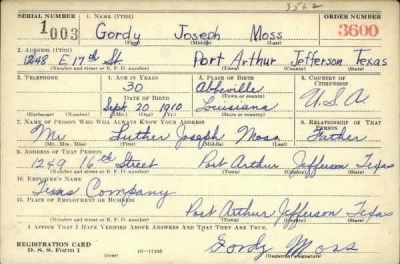 SERIAL NUMBER 1. NAME (Print) 3562 ORDER NUMBER
1003 Gordy Joseph Moss 3600
(First) (Middle) (Last)
2. ADDRESS (Print)
1248 E 17th St. Port Arthur Jefferson Texas
(Number and street or R. F. D. number) (Town) (County) (State)
3. TELEPHONE 4. AGE IN YEARS 5. PLACE OF BIRTH 6. COUNTRY OF CITIZENSHIP
30 Abbeville
DATE OF BIRTH (Town or county)
Sept. 20 1910 Louisiana U.S.A
(Exchange) (Number) (Mo.) (Day) (Yr.) (State or country)
7. NAME OF PERSON WHO WILL ALWAYS KNOW YOUR ADDRESS 8. RELATIONSHIP OF THAT PERSON
Mr Luther Joseph Moss Father
(Mr., Mrs., Miss) (First) (Middle) (Last)
9. ADDRESS OF THAT PERSON
1249 16th Street Port Arthur Jefferson Texas
(Number and street or R. F. D. number) (Town) (County) (State)
10. EMPLOYER'S NAME
Texas Company
11. PLACE OF EMPLOYMENT OR BUSINESS
Port Arthur Jefferson Texas
(Number and street or R. F. D. number) (Town) (County) (State)
I AFFIRM THAT I HAVE VERIFIED ABOVE ANSWERS AND THAT THEY ARE TRUE.
REGISTRATION CARD Gordy Moss
D. S. S. Form 1 (Registrant's signature)